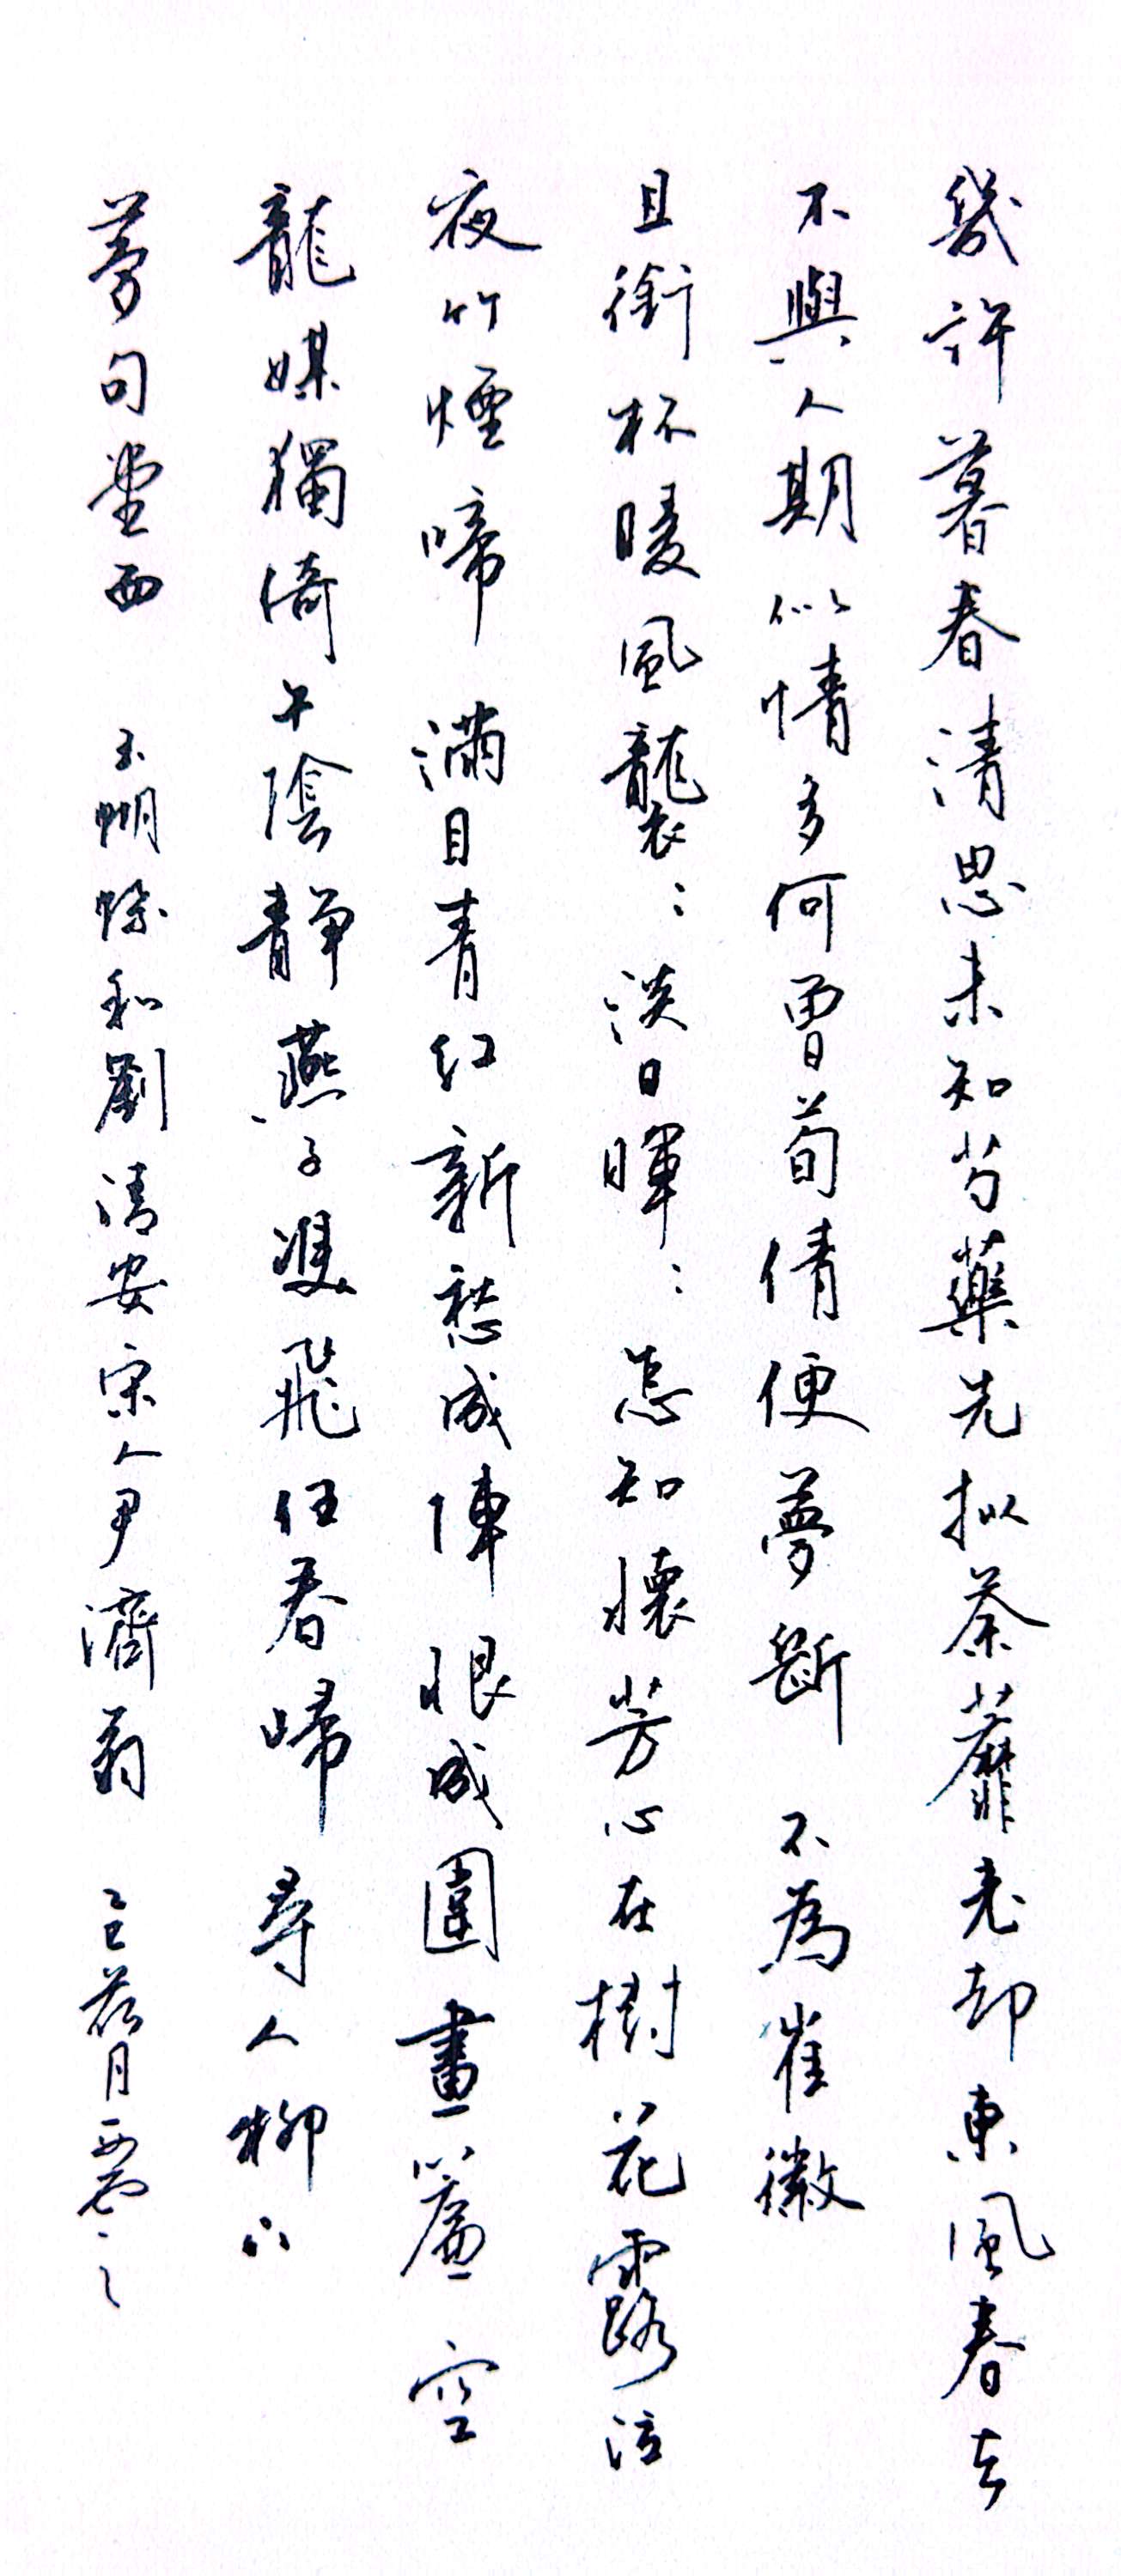 幾許暮春清思未知芍藥先擬荼蘼老却東風春去
不與人期似情多何曾荀倩便夢斷 不為崔徽
且銜杯暖風襲〻淡日暉〻怎知懷芳心在樹花露泣
夜竹煙啼 滿目青紅新愁成陣恨成圍畫簾空
龍媒獨倚午陰靜燕子雙飛任春歸 尋人柳下
夢句堂西 玉蝴蝶和劉清安宋人尹濟翁 乙巳荷月雲之